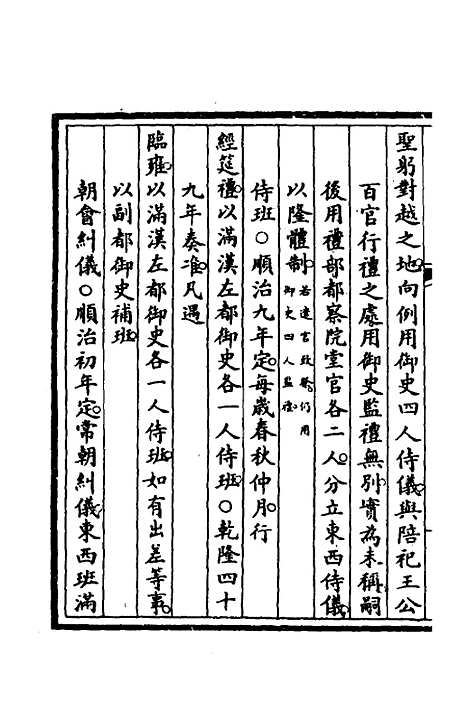 聖躬對越之地向例用御史四人侍儀與陪祀王公
百官行禮之處用御史監禮無別實為未稱嗣
後用禮部都察院堂官各二人分立東西侍儀
以隆體制若遣官致祭仍用御史四人監禮
侍班○順治九年定每歲春秋仲月行
經筵禮以滿漢左都御史各一人侍班○乾隆四十
九年奏准凡遇
臨雍以滿漢左都御史各一人侍班如有出差等事
以副都御史補班
朝會糾儀○順治初年定常朝糾儀東西班滿